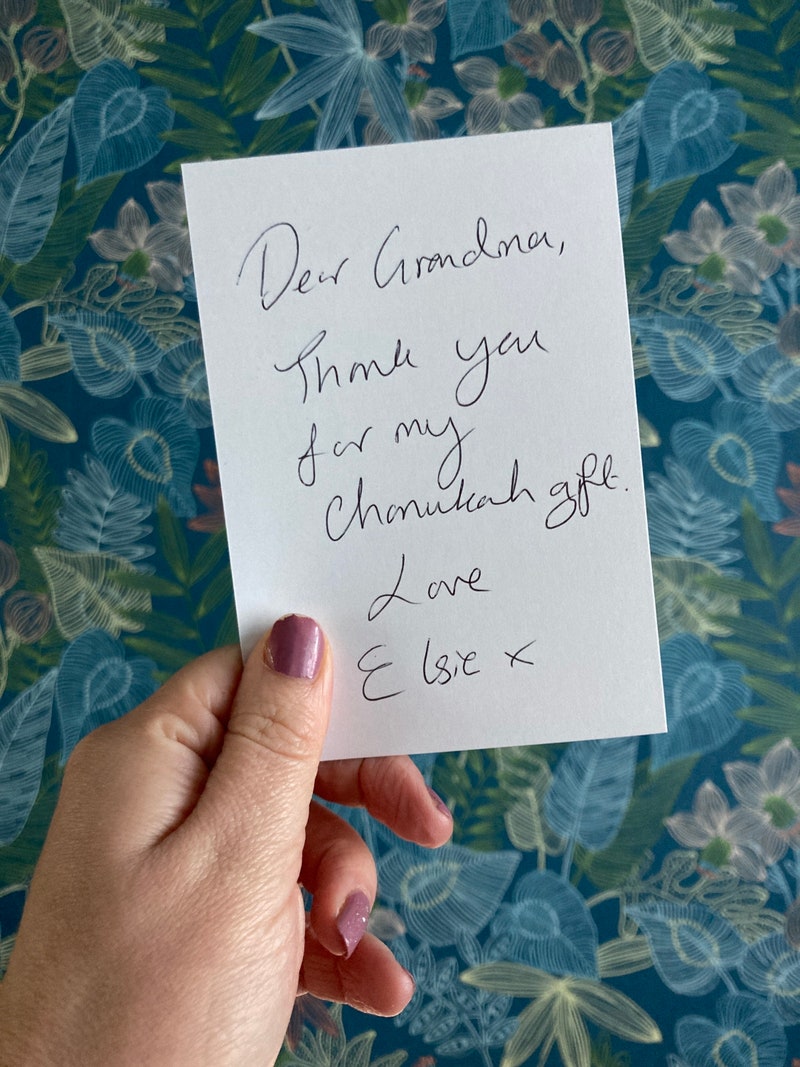 Dear Grandma,
Thank you
for my
Chanukah gift.
Love
Elsie x